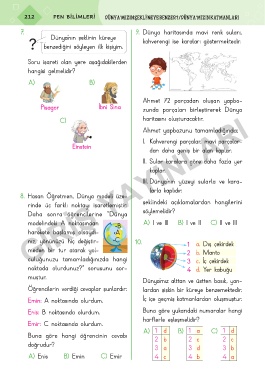 212 FEN BİLİMLERİ DÜNYA'MIZIN ŞEKLİ NEYE BENZER? / DÜNYA'MIZIN KATMANLARI
7.
? Dünyamızın şeklinin küreye
benzediğini söyleyen ilk kişiyim.
Soru işareti olan yere aşağıdakilerden
hangisi gelmelidir?
A) B)
Pisagor İbni Sina
C)
Einstein
8. Hasan Öğretmen, Dünya modeli üze-
rinde üç farklı noktayı işaretlemiştir.
Daha sonra öğrencilerine "Dünya
modelindeki A noktasından
harekete başlama olsaydı-
nız yönünüzü hiç değiştir-
meden bir tur atarak yol-
culuğunuzu tamamladığınızda hangi
noktada olurdunuz?" sorusunu sor-
muştur.
Öğrencilerin verdiği cevaplar şunlardır:
Emin: A noktasında olurdum.
Enis: B noktasında olurdum.
Emir: C noktasında olurdum.
Buna göre hangi öğrencinin cevabı
doğrudur?
A) Enis B) Emin C) Emir
9. Dünya haritasında mavi renk suları,
kahverengi ise karaları göstermektedir.
Ahmet 72 parçadan oluşan yapbo-
zunda parçaları birleştirerek Dünya
haritasını oluşturacaktır.
Ahmet yapbozunu tamamladığında;
I. Kahverengi parçalar, mavi parçalar-
dan daha geniş bir alan kaplar.
II. Sular karalara göre daha fazla yer
kaplar.
III. Dünya'nın yüzeyi sularla ve kara-
larla kaplıdır.
şeklindeki açıklamalardan hangilerini
söylemelidir?
A) I ve III B) I ve II C) II ve III
10.
1 a. Dış çekirdek
2 b. Manto
3 c. İç çekirdek
4 d. Yer kabuğu
Dünyamız alttan ve üstten basık, yan-
lardan şişkin bir küreye benzemektedir.
İç içe geçmiş katmanlardan oluşmuştur.
Buna göre yukarıdaki numaralar hangi
harflerle eşleşmelidir?
A) 1 d B) 1 a C) 1 d
2 b 2 c 2 c
3 a 3 d 3 b
4 c 4 b 4 a